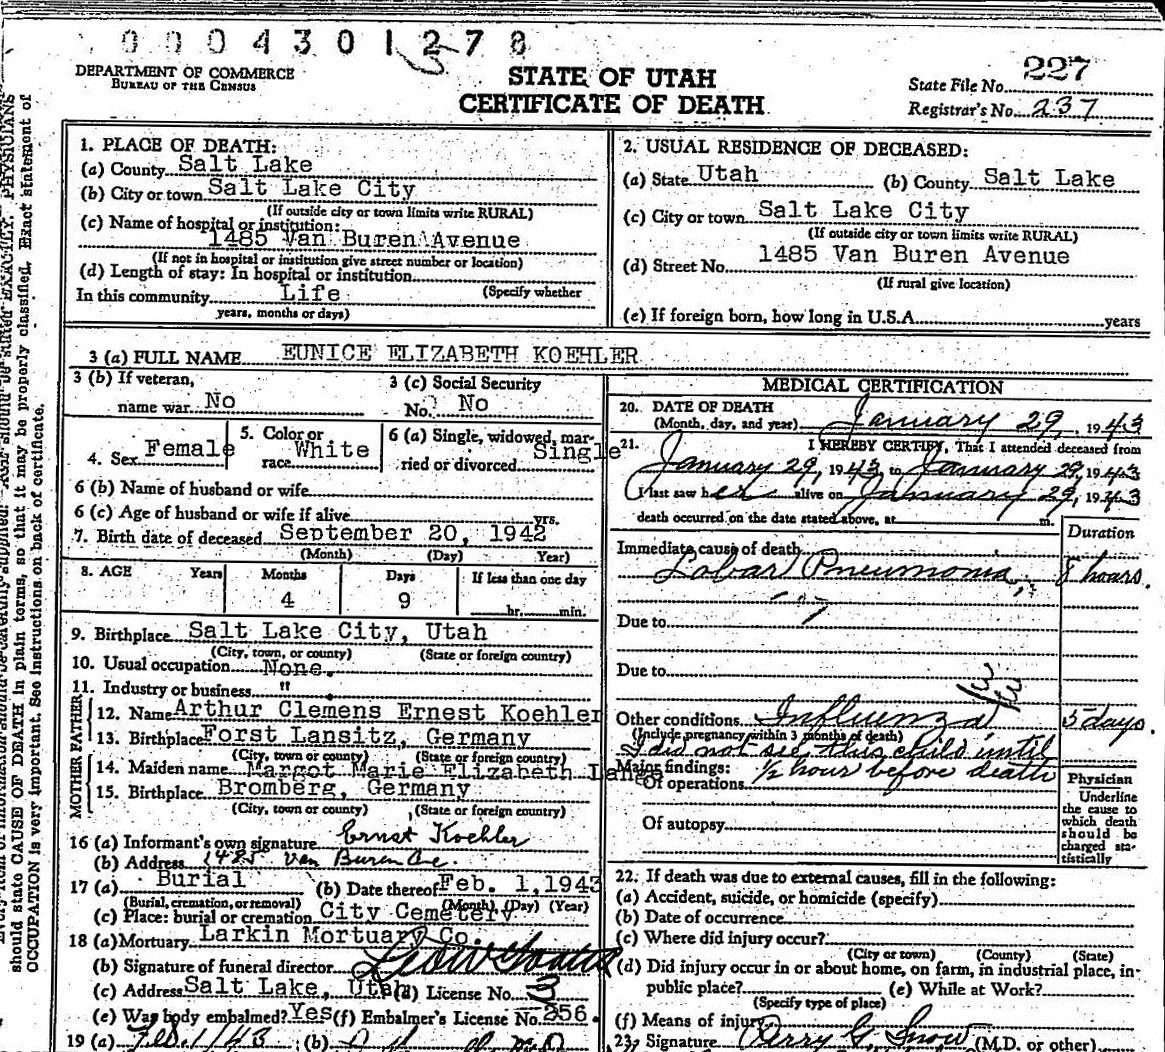 0004301278
DEPARTMENT OF COMMERCE
BUREAU OF THE CENSUS
STATE OF UTAH
CERTIFICATE OF DEATH
State File No. 227
Registrar's No. 237
1. PLACE OF DEATH:
(a) County Salt Lake
(b) City or town Salt Lake City
(If outside city or town limits write RURAL)
(c) Name of hospital or institution:
1485 Van Buren Avenue
(If not in hospital or institution give street number or location)
(d) Length of stay: In hospital or institution
(Specify whether
In this community Life
years, months or days)
2. USUAL RESIDENCE OF DECEASED:
(a) State Utah (b) County Salt Lake
(c) City or town Salt Lake City
(If outside city or town limits write RURAL)
(d) Street No. 1485 Van Buren Avenue
(If rural give location)
(e) If foreign born, how long in U.S.A. years
3 (a) FULL NAME EUNICE ELIZABETH KOEHLER
3 (b) If veteran,
name war No
3 (c) Social Security
No. No
4. Sex Female
5. Color or
race White
6 (a) Single, widowed, mar-
ried or divorced Single
6 (b) Name of husband or wife
6 (c) Age of husband or wife if alive yrs.
7. Birth date of deceased September 20, 1942
(Month) (Day) Year)
8. AGE Years Months Days If less than one day
4 9 hr. min.
9. Birthplace Salt Lake City, Utah
(City, town, or county) (State or foreign country)
10. Usual occupation None.
11. Industry or business "
FATHER
12. Name Arthur Clemens Ernest Koehler
13. Birthplace Forst Lansitz, Germany
(City, town or county) (State or foreign country)
MOTHER
14. Maiden name Margot Marie Elizabeth Lange
15. Birthplace Bromberg, Germany
(City, town or county) (State or foreign country)
16 (a) Informant's own signature Ernst Koehler
(b) Address 1485 Van Buren Ave.
17 (a) Burial (b) Date thereof Feb. 1, 1943
(Burial, cremation, or removal) (Month) (Day) (Year)
(c) Place: burial or cremation City Cemetery
18 (a) Mortuary Larkin Mortuary Co.
(b) Signature of funeral director
(c) Address Salt Lake, Utah (d) License No. 3
(e) Was body embalmed? Yes (f) Embalmer's License No. 256.
19 (a) Feb. 1/43 (b)
MEDICAL CERTIFICATION
20. DATE OF DEATH
(Month, day, and year) January 29, 1943
21. I HEREBY CERTIFY, That I attended deceased from
January 29, 1943, to January 29, 1943
I last saw her alive on January 29, 1943
death occurred on the date stated above, at m.
Duration
Immediate cause of death
Lobar Pneumonia 8 hours.
Due to
Due to
Other conditions Influenza 5 days.
(Include pregnancy within 3 months of death)
I did not see this child until
1/2 hour before death
Major findings:
Of operations
Of autopsy
Physician
Underline
the cause to
which death
should be
charged sta-
tistically
22. If death was due to external causes, fill in the following:
(a) Accident, suicide, or homicide (specify)
(b) Date of occurrence
(c) Where did injury occur?
(City or town) (County) (State)
(d) Did injury occur in or about home, on farm, in industrial place, in-
public place? (e) While at Work?
(Specify type of place)
(f) Means of injury
23. Signature Perry G. Snow (M.D. or other)
should state CAUSE OF DEATH in plain terms, so that it may be properly classified. Exact statement of
OCCUPATION is very important. See instructions on back of certificate.